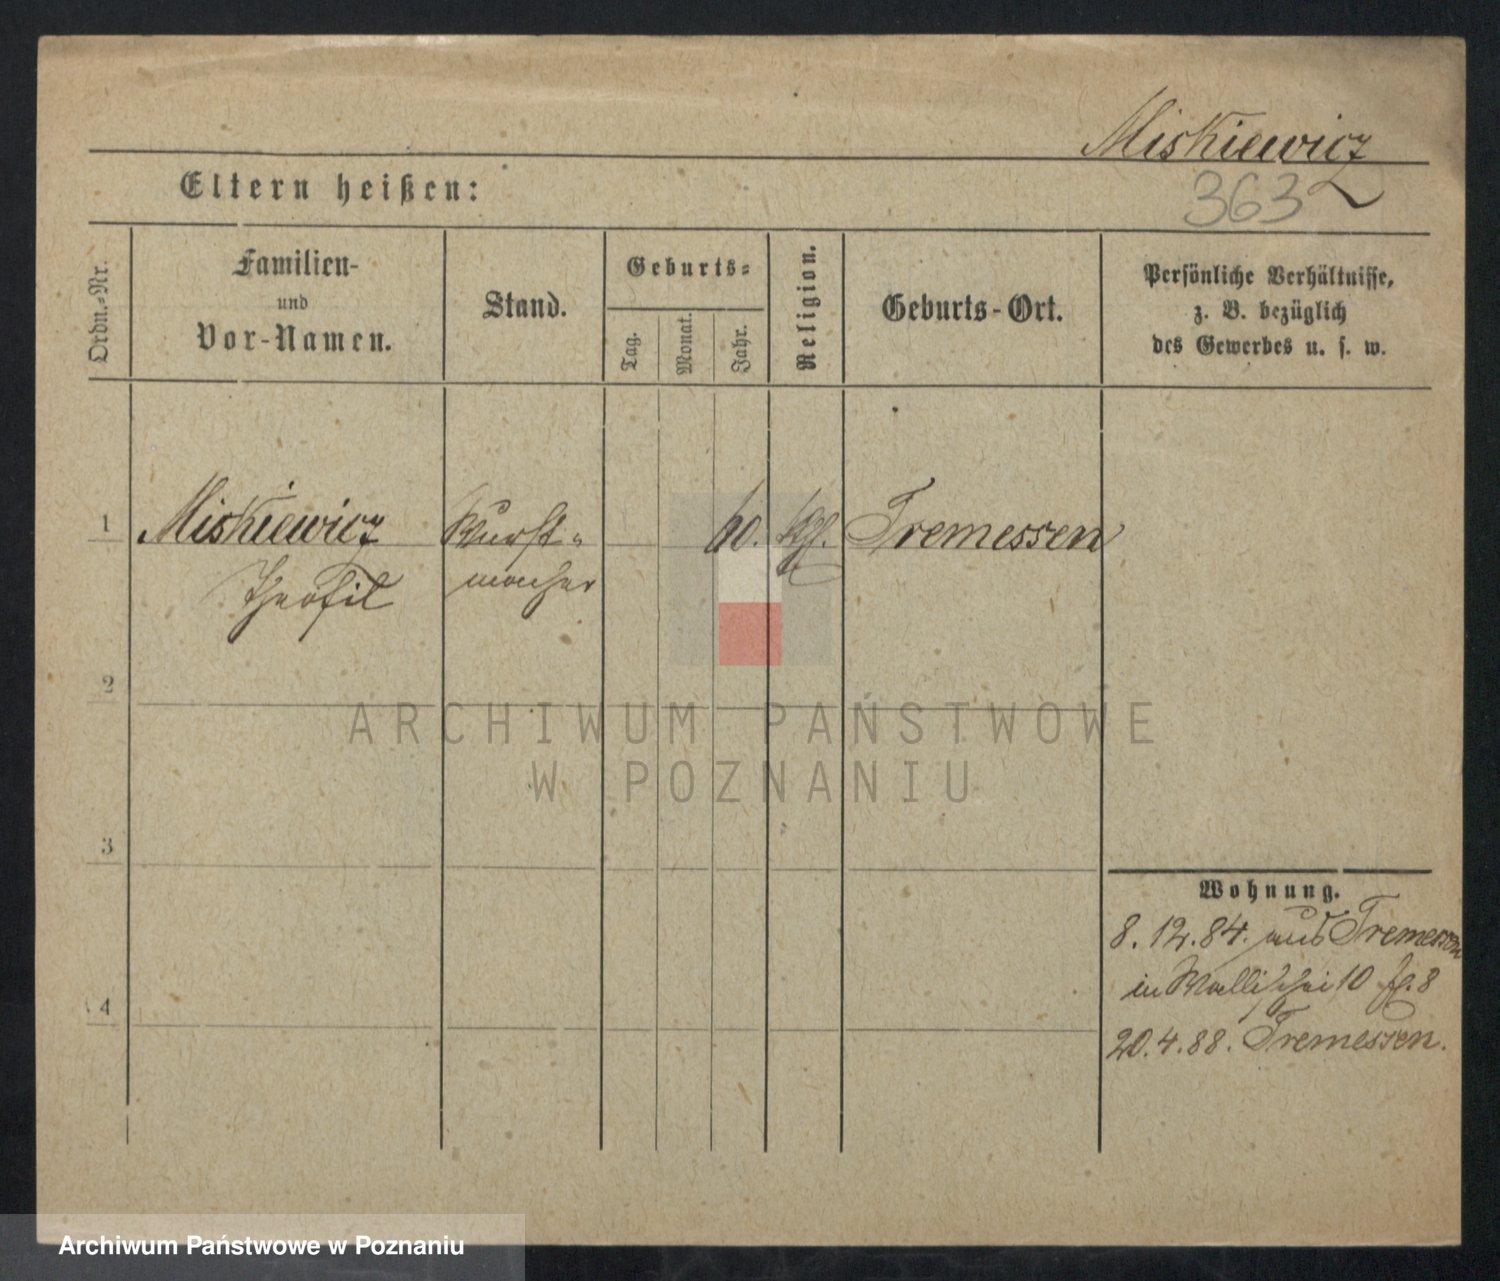 Miskiewicz
363
Eltern heißen:
Ordn.-Nr.
Familien-
und
Vor-Namen.
Stand.
Geburts-
Tag.
Monat.
Jahr.
Religion.
Geburts-Ort.
Persönliche Verhältnisse,
z. B. bezüglich
des Gewerbes u. s. w.
1 Miskiewicz Wurst- 60. Tremessen
Theofil macher
2
ARCHIWUM PAŃSTWOWE
W POZNANIU
3
Wohnung.
8. 12. 84. aus Tremessen
in Wallischei 10 8
4
20. 4. 88. Tremessen.
Archiwum Państwowe w Poznaniu